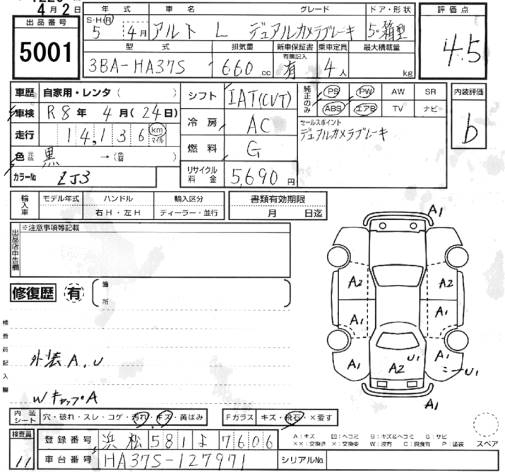 4月2日
出品番号 5001
年式 車名 グレード ドア・形状
S・H・Ⓡ 5年 4月 アルト L デュアルカメラブレーキ 5・箱型
型式 排気量 新車保証書 乗車定員 最大積載量
3BA-HA37S 660 cc 有 4人 kg
評価点
4.5
車歴 自家用・レンタ( )
車検 R8年 4月(24日)
走行 14,136 km マイル
色 黒 →( )
カラーNo ZJ3
シフト IAT(CVT)
冷房 AC
燃料 G
リサイクル料金 5,690円
純正のみ PS PW AW SR
ABS エアB TV ナビ
セールスポイント
デュアルカメラブレーキ
内装評価
b
輸入車 モデル年式 ハンドル 輸入区分
年 右H・左H ディーラー・並行
書類有効期限
月 日迄
※注意事項等記載
出品店申告欄
修復歴 有 箇所
検査員記入欄
外装A.U
WキャップA
A1
A2 A2
A1 A1
A1 A1
U1 A2
U1
A1
スペア
内装シート 穴・破れ・スレ・コゲ・汚れ・キズ・黄ばみ
Fガラス キズ・飛石・×要す
検査員 11
登録番号 浜松581よ7606
車台番号 HA37S-127971
シリアルNo.